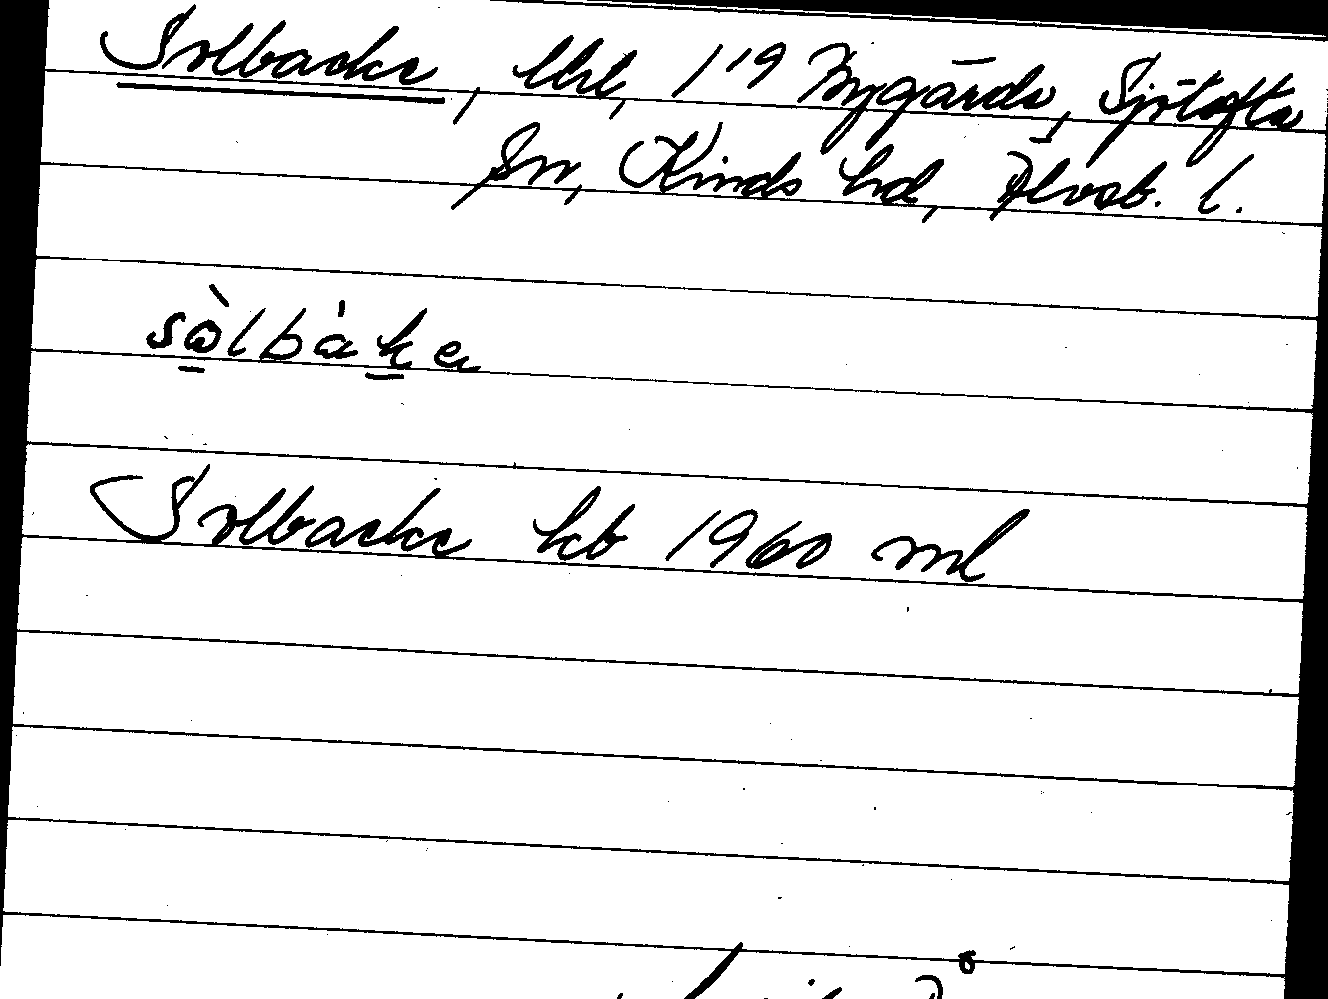 Solbacke, lht, 1'9 Bygärde, Sjötofta
sn, Kinds hd, Älvsb. l.
sòlbàke
Solbacke kb 1960 ml